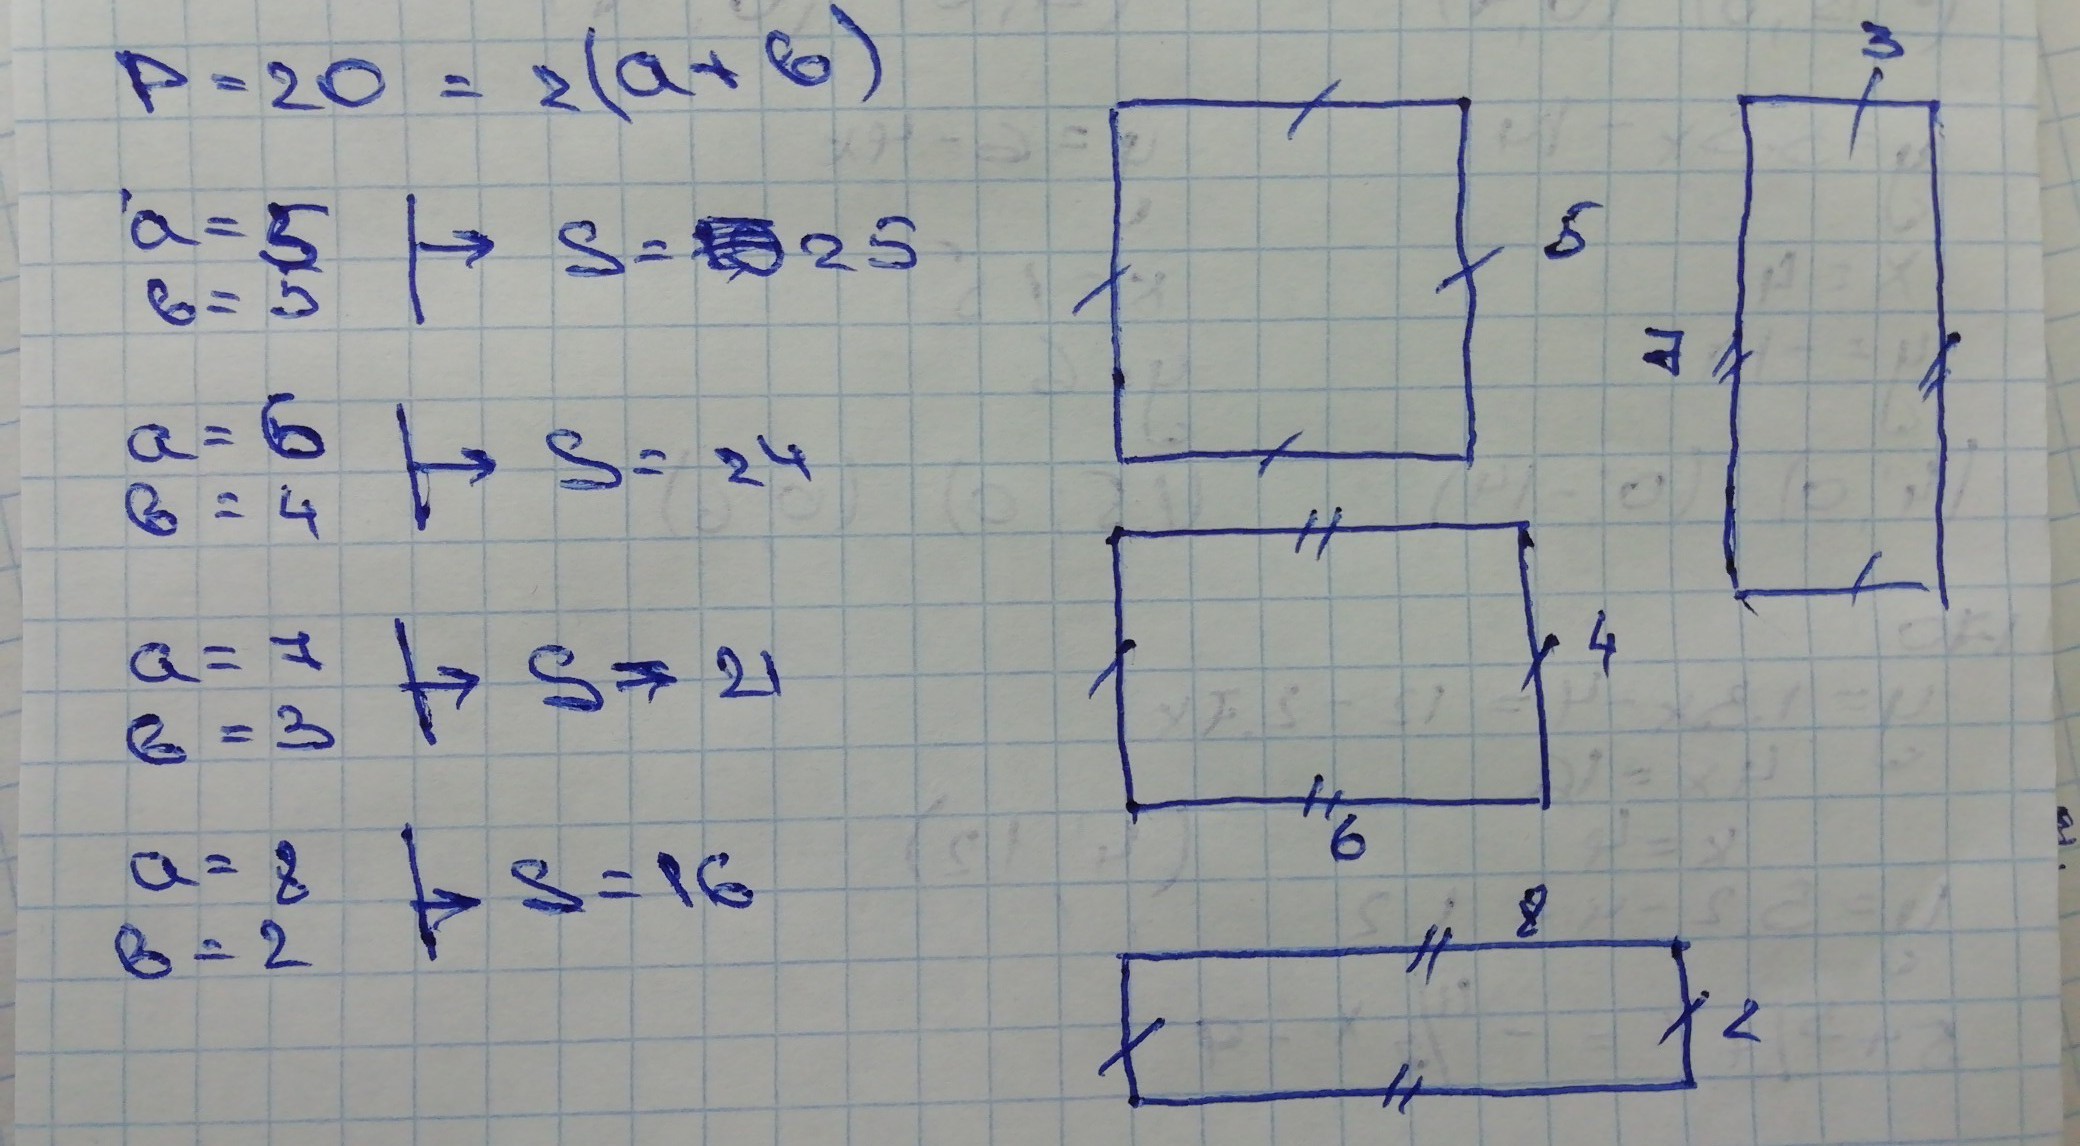 P = 20 = 2(a + в)
a = 5
в = 5
S = 25
a = 6
в = 4
S = 24
a = 7
в = 3
S = 21
a = 8
в = 2
S = 16
5
3
7
4
6
8
2